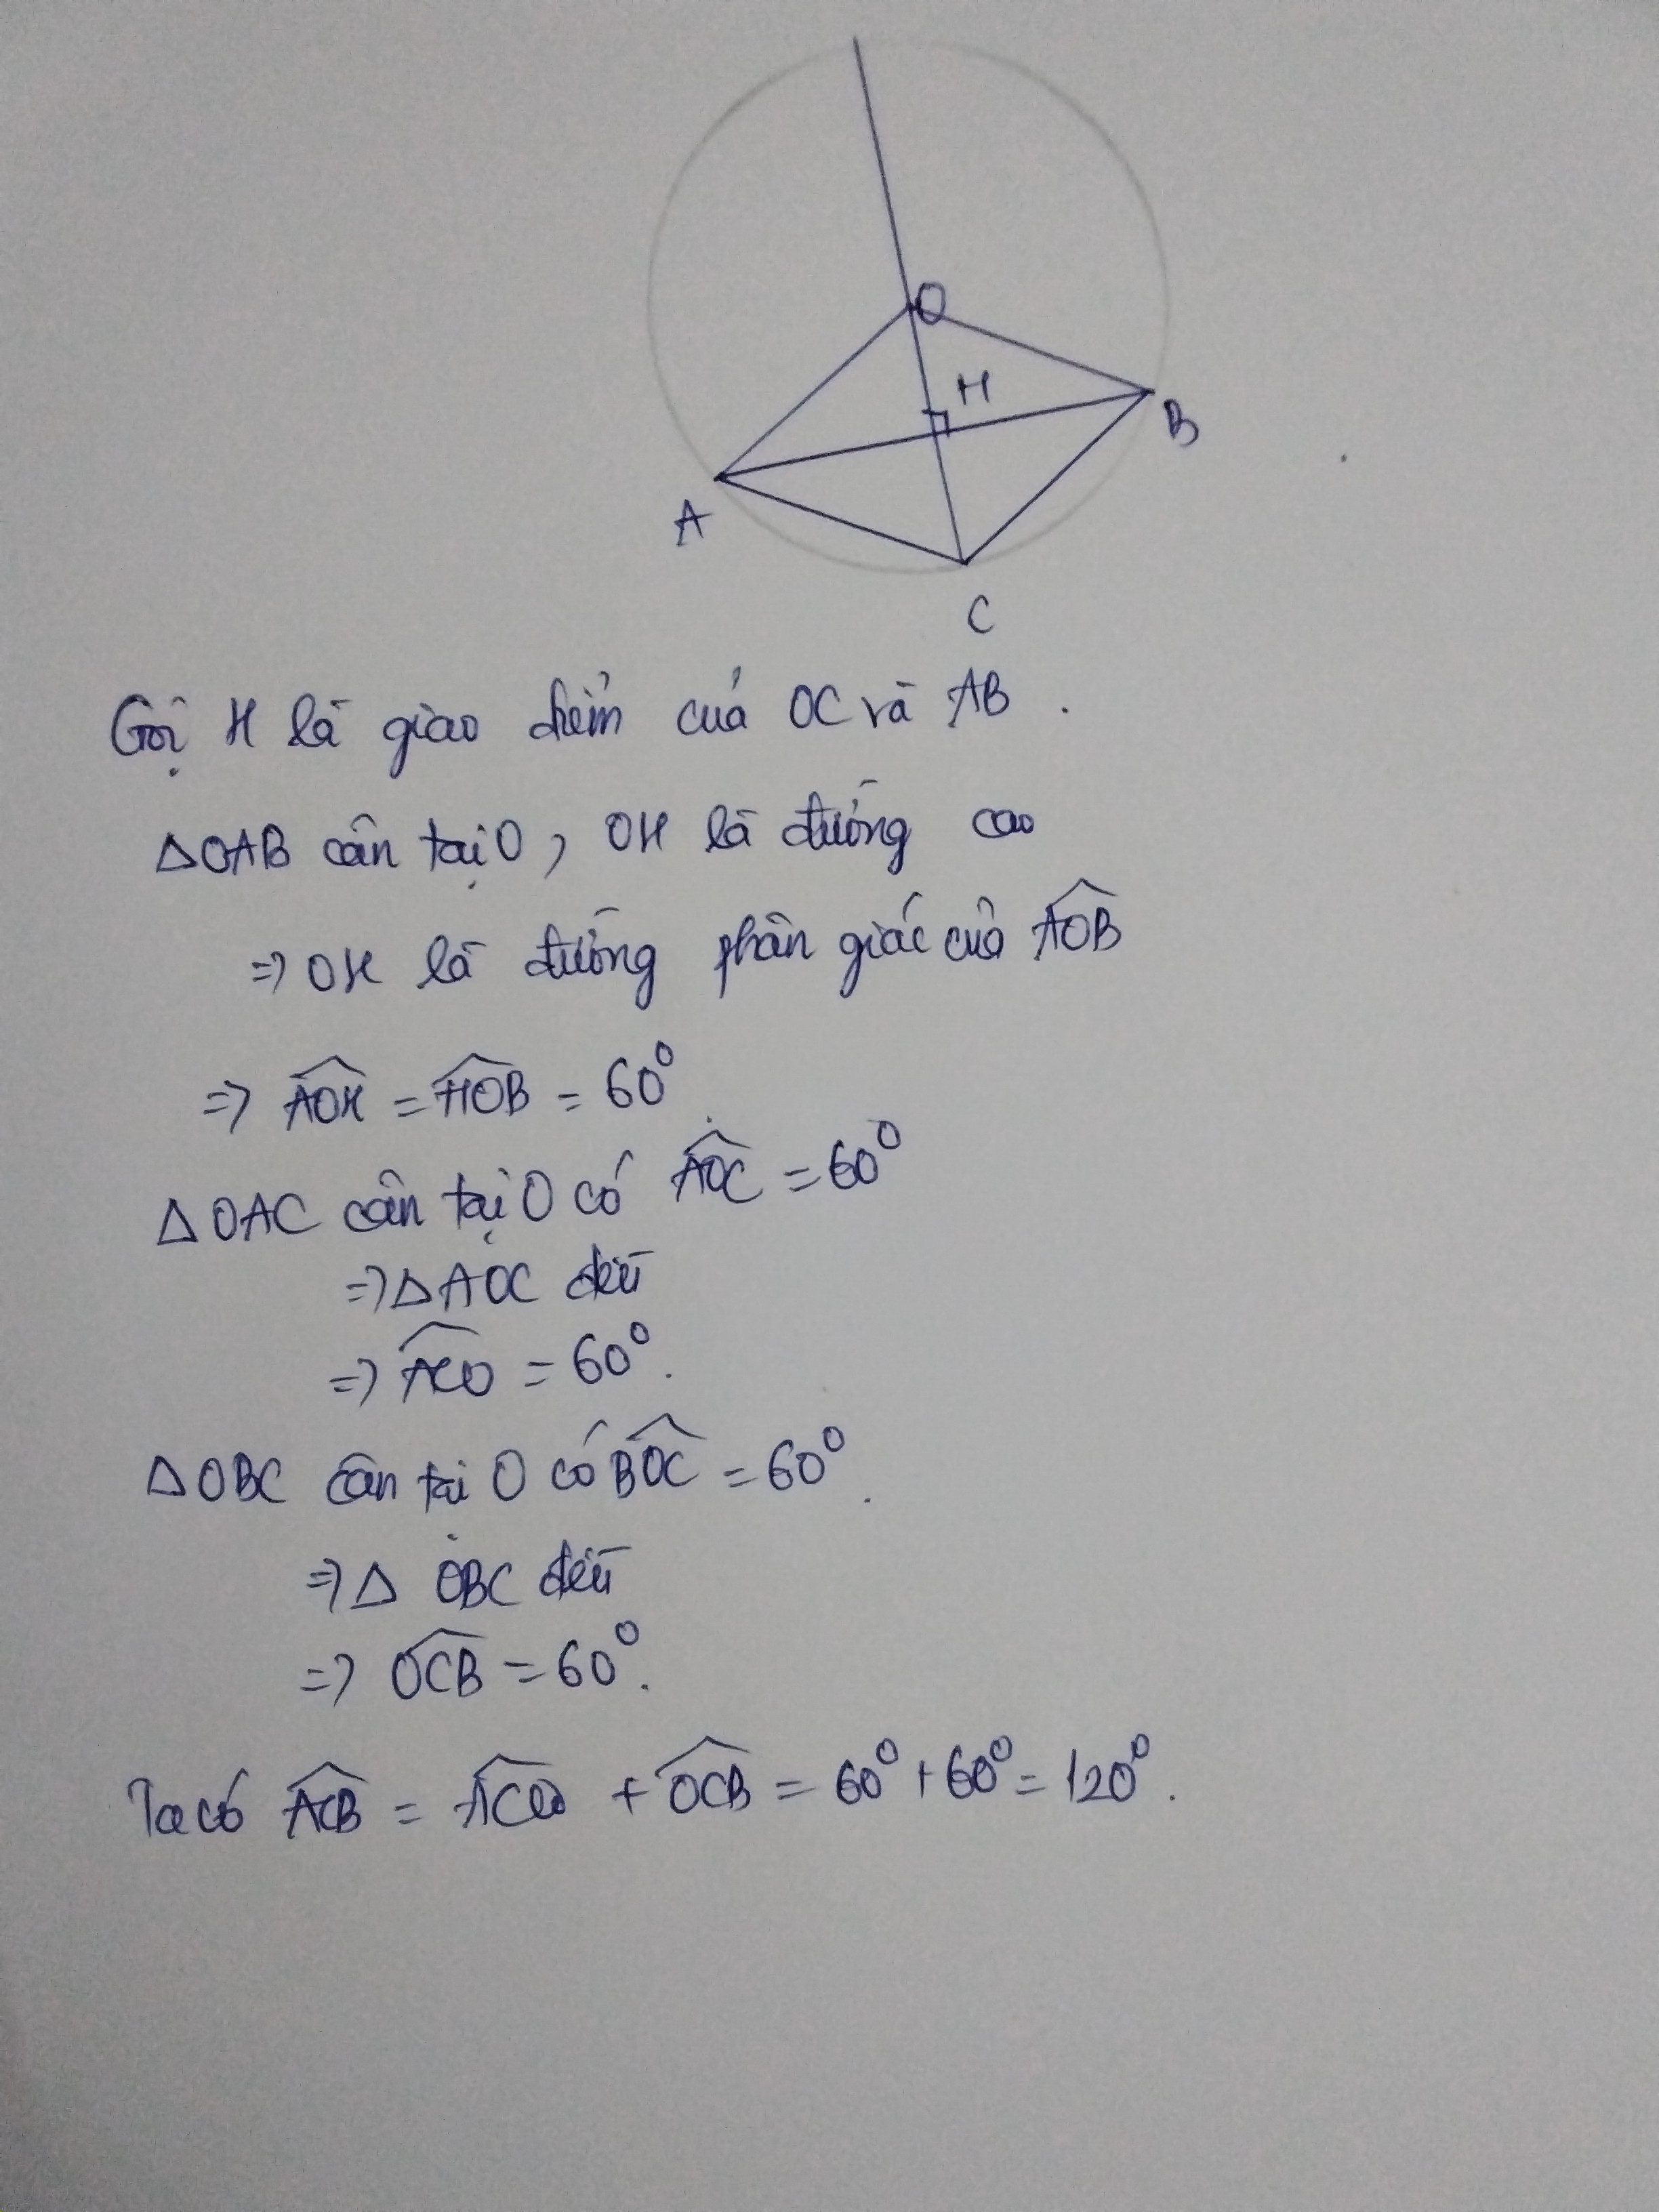 O
H
B
A
C
Gọi H là giao điểm của OC và AB.
△OAB cân tại O, OH là đường cao
=> OH là đường phân giác của \widehat{AOB}
=> \widehat{AOH} = \widehat{HOB} = 60°.
△OAC cân tại O có \widehat{AOC} = 60°
=> △AOC đều
=> \widehat{ACO} = 60°.
△OBC cân tại O có \widehat{BOC} = 60°.
=> △OBC đều
=> \widehat{OCB} = 60°.
Ta có \widehat{ACB} = \widehat{ACO} + \widehat{OCB} = 60° + 60° = 120°.